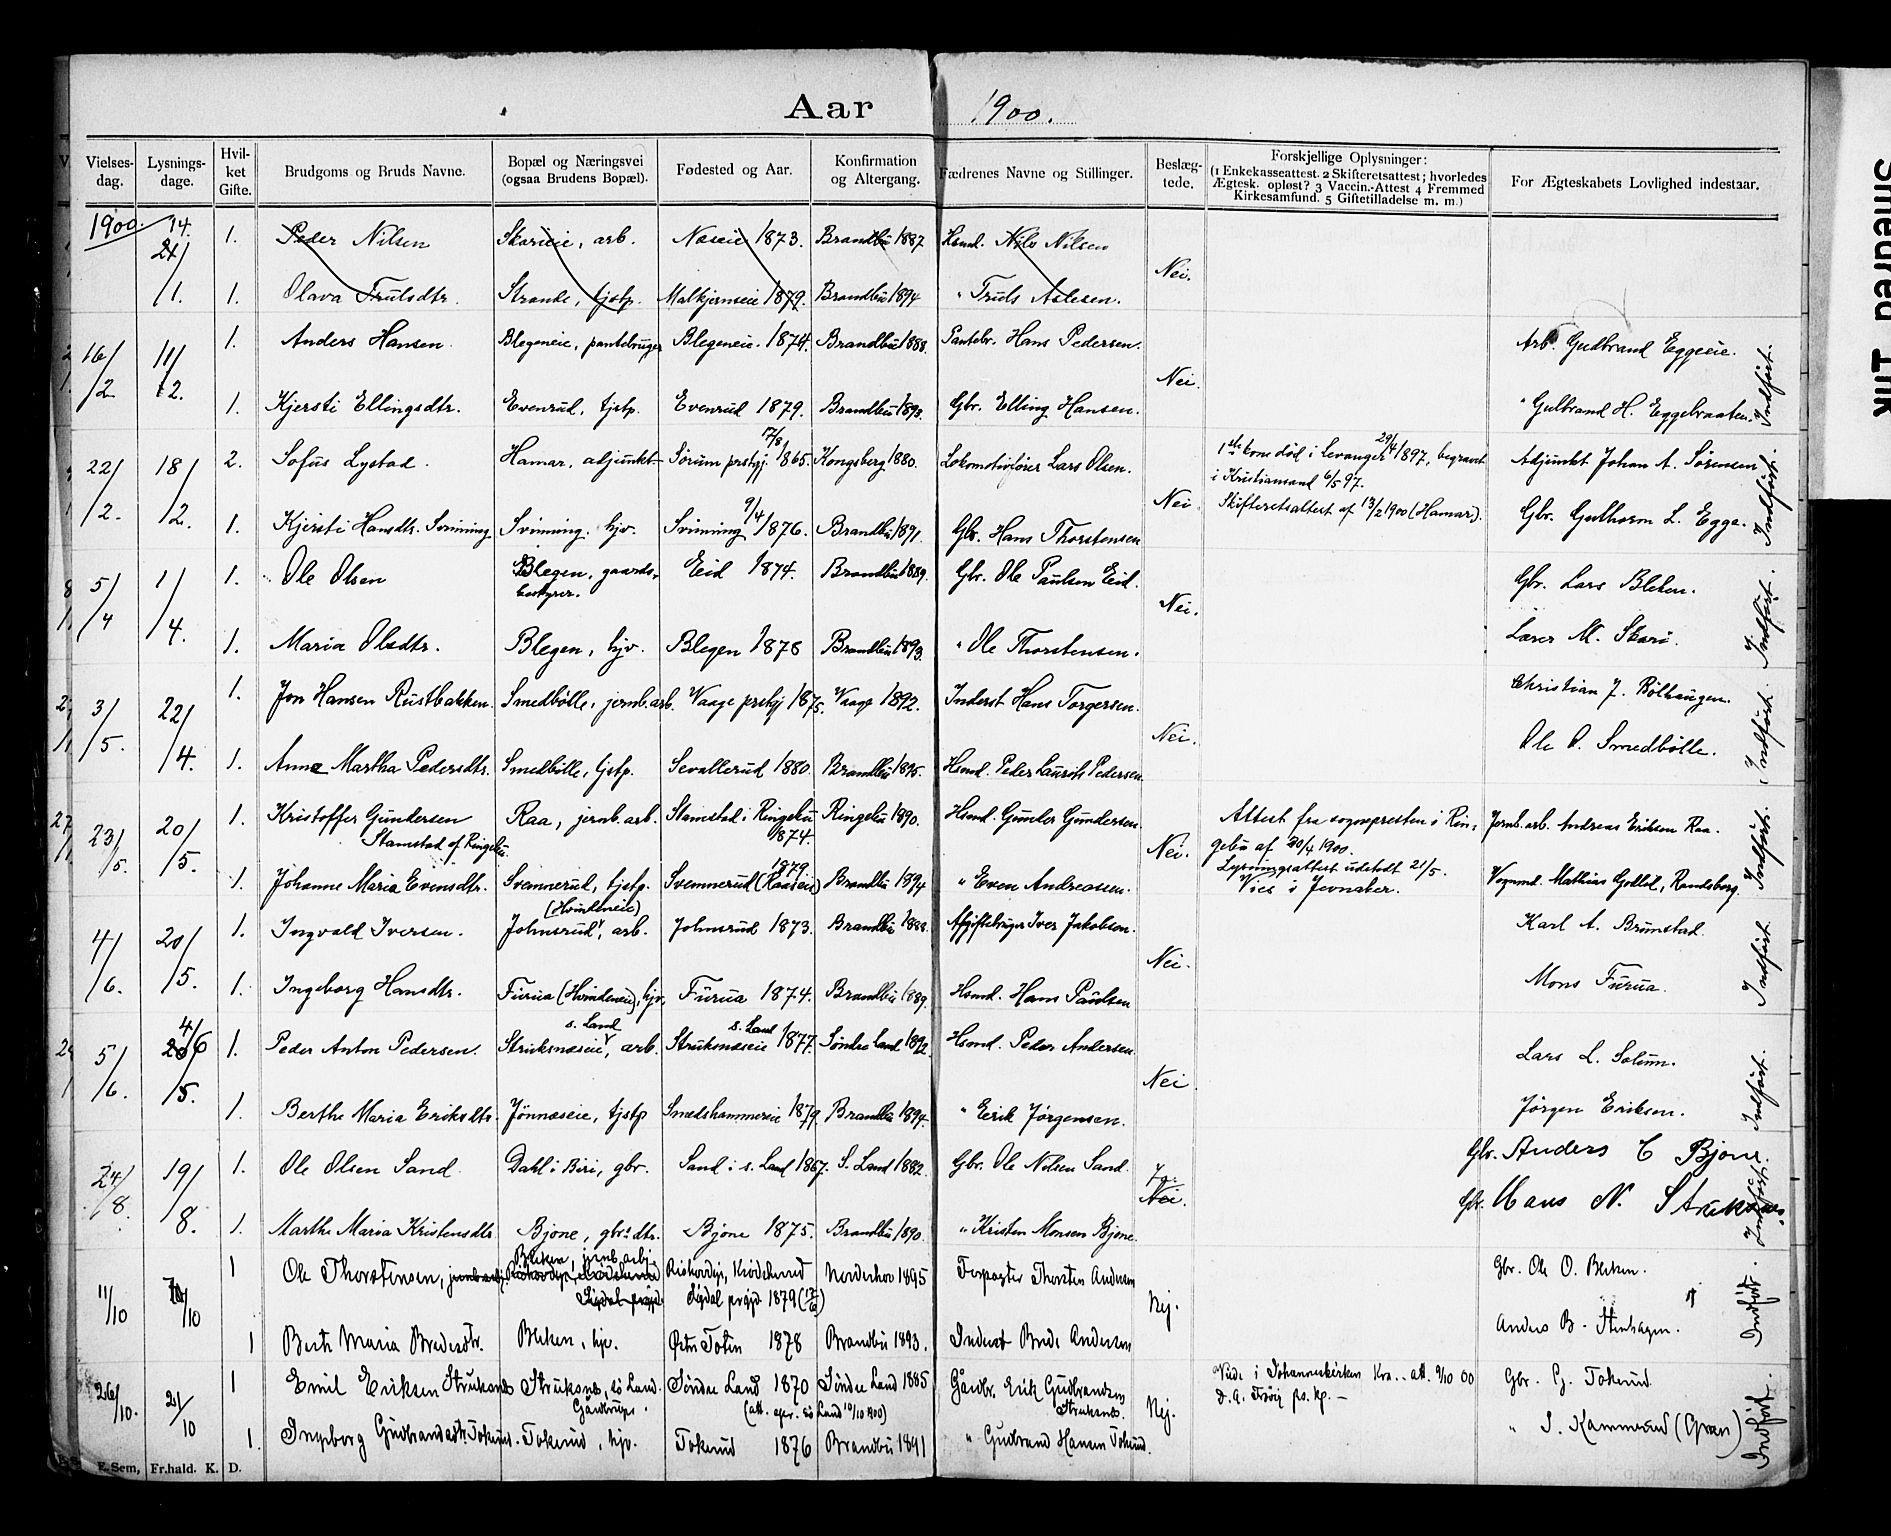 Aar 1900.
Vielses-dag. Lysnings-dage. Hvil-ket Gifte. Brudgoms og Bruds Navne. Bopæl og Næringsvei (ogsaa Brudens Bopæl). Fødested og Aar. Konfirmation og Altergang. Fædrenes Navne og Stillinger. Beslæg-tede. Forskjellige Oplysninger: (1 Enkekasseattest. 2 Skifteretsattest; hvorledes Ægtesk. opløst? 3 Vaccin.-Attest 4 Fremmed Kirkesamfund. 5 Giftetilladelse m. m.) For Ægteskabets Lovlighed indestaar.
1900. 14. 21/1. 1. Peder Nilsen Skarieie, arb. Næseie 1873. Brandbu 1887 Hsmd. Nils Nilsen Nei.
1. Olava Trulsdtr. Strande, tjstp. Malkjernseie 1879. Brandbu 1894 " Truls Aslesen.
16/2 11/2. 1. Anders Hansen Blegeneie, pantebruger Blegeneie. 1874. Brandbu 1888. Pantebr. Hans Pedersen. Nei. Arb. Gudbrand Eggeeie. Indført.
1. Kjersti Ellingsdtr. Evenrud, tjstp. Evenrud 1879. Brandbu 1893. Gbr. Elling Hansen. " Gulbrand H. Eggebraaten.
22/2. 18/2. 2. Sofus Lystad. Hamar, adjunkt Sørum prstgj. 17/8 1865. Kongsberg 1880. Lokomotivfører Lars Olsen. Nei 1ste kone død i Levanger 29/4 1897, begravet i Kristiansand 6/5 97. Adjunkt Johan A. Sørensen Indført.
1. Kjersti Hansdtr. Svinning Svinning. hjv. Svinning 9/4 1876. Brandbu 1891. Gbr. Hans Thorstensen Skifteretsattest af 13/2 1900 (Hamar). Gbr. Guthorm L. Egge.
5/4 1/4. 1. Ole Olsen Blegen, gaardsbestyrer. Eid 1874. Brandbu 1889. Gbr. Ole Paulsen Eid. Nei. Gbr. Lars Bleken. Indført.
1. Maria Olsdtr. Blegen, hjv. Blegen 1876 Brandbu 1893. " Ole Thorstensen. Lærer M. Skari.
3/5. 22/4. 1. Jon Hansen Rustbakken. Smedbølle, jernb.arb. Vaage prstgj 1875. Vaage 1892. Inderst Hans Torgersen. Nei. Christian J. Bølhaugen. Indført.
1. Anne Martha Pedersdtr. Smedbølle, tjstp. Sevallerud 1880. Brandbu 1895. Hsmd. Peder Laurits Pedersen. Ole O. Smedbølle.
23/5. 20/5. 1. Kristoffer Gundersen Stamstad af Ringebu. Raa, jernb.arb. Stamstad i Ringebu 1874. Ringebu 1890. Hsmd. Gunder Gundersen Nei. Attest fra sognepresten i Ringebu af 20/4 1900. Jernb. arb. Andreas Eriksen Raa. Indført.
1. Johanne Maria Evensdtr. Svennerud, tjstp. Svennerud (Raaseie) 1879. Brandbu 1894 " Even Andreassen. Lysningsattest udstedt 21/5. Vies i Jevnaker. Vognmd. Mathias Godlid, Randsborg.
4/6. 20/5. 1. Ingvald Iversen. Johnsrud (Hvindeneie), arb. Johnsrud 1873. Brandbu 1888. Afgiftsbruger Iver Jakobsen. Nei. Karl A. Brunstad. Indført.
1. Ingeborg Hansdtr. Furua (Hvindeneie), hjv. Furua 1874. Brandbu 1889. Hsmd. Hans Paulsen Mons Furua.
5/6. 4/6 20/5. 1. Peder Anton Pedersen. Struksnæseie s. Land, arb. Struksnæseie s. Land 1877. Søndre Land 1892. Hsmd. Peder Andersen Nei. Lars L. Solum. Indført.
1. Berthe Maria Eriksdtr. Jønnæseie, tjstp Smedshammereie 1879. Brandbu 1894. " Eirik Jørgensen. Jørgen Eriksen.
24/8. 19/8. 1. Ole Olsen Sand Dahl i Biri, gbr. Sand i s. Land 1867. S. Land 1882. Gbr. Ole Nilsen Sand. Ja. Nei. Gbr. Anders C Bjone. Indført.
1. Marthe Maria Kristensdtr. Bjone, gbr.dtr. Bjone 1875. Brandbu 1890. " Kristen Monsen Bjone. Gbr. Hans N. Struksnæs.
11/10 7/10 1 Ole Thorstensen, jernb.arb. Bleken, jernb.arbj. Riskovdye, Krødsherred Sigdal prgjd 1879 (17/6) Norderhov 1895 Forpagter Thorsten Andersen Nej. Gbr. Ole O. Bleken. Indført.
1 Berth Maria Bredesdtr. Bleken, hjv. Østre Toten 1878 Brandbu 1893. Inderst Brede Andersen Anders B. Stenhagen.
26/10. 21/10 1 Emil Eriksen Struksnæs Struksnæs, sø. Land. Gaardbruger. Søndre Land 1870 (att. sgpr. sø Land 10/10 1900) Søndre Land 1885 Gaardbr. Erik Gudbrandsen Struksnæs. Nej. Viede i Johanneskirken Kra. - att. 9/10 00 Gbr. G. Tokerud. Indført.
1. Ingeborg Gudbrandsdtr. Tokerud. Tokerud, hjv. Tokerud 1876 Brandbu 1891 " Gudbrand Hansen Tokerud. " I. Kammerud (Gran)
F. Sem, Fr.hald. K. D.